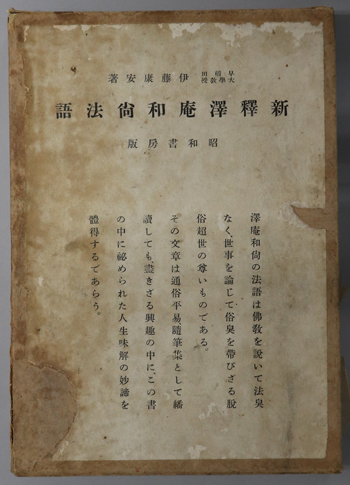 早稻田大學教授 伊藤康安著
新釋澤庵和尙法語
昭和書房版
澤庵和尙の法語は佛敎を說いて法臭
なく、世事を論じて俗臭を帶びざる脫
俗超世の尊いものである。
その文章は通俗平易隨筆集として繙
讀しても、盡きざる興趣の中に、この書
の中に祕められた人生味解の妙諦を
體得するであらう。